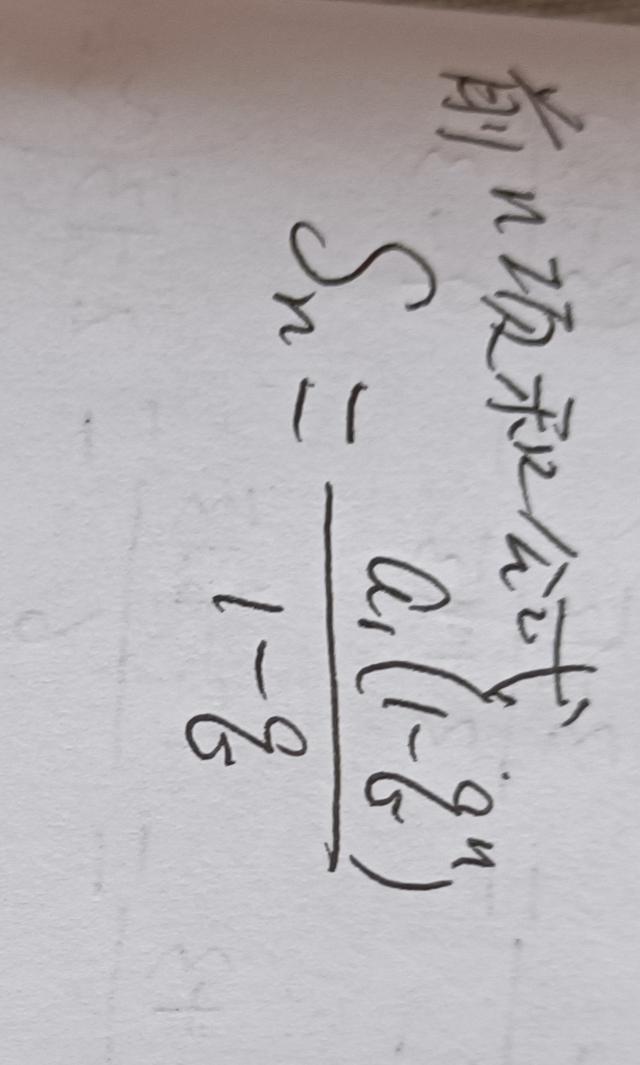 前n项和公式
Sn = a1(1-q^n) / 1-q